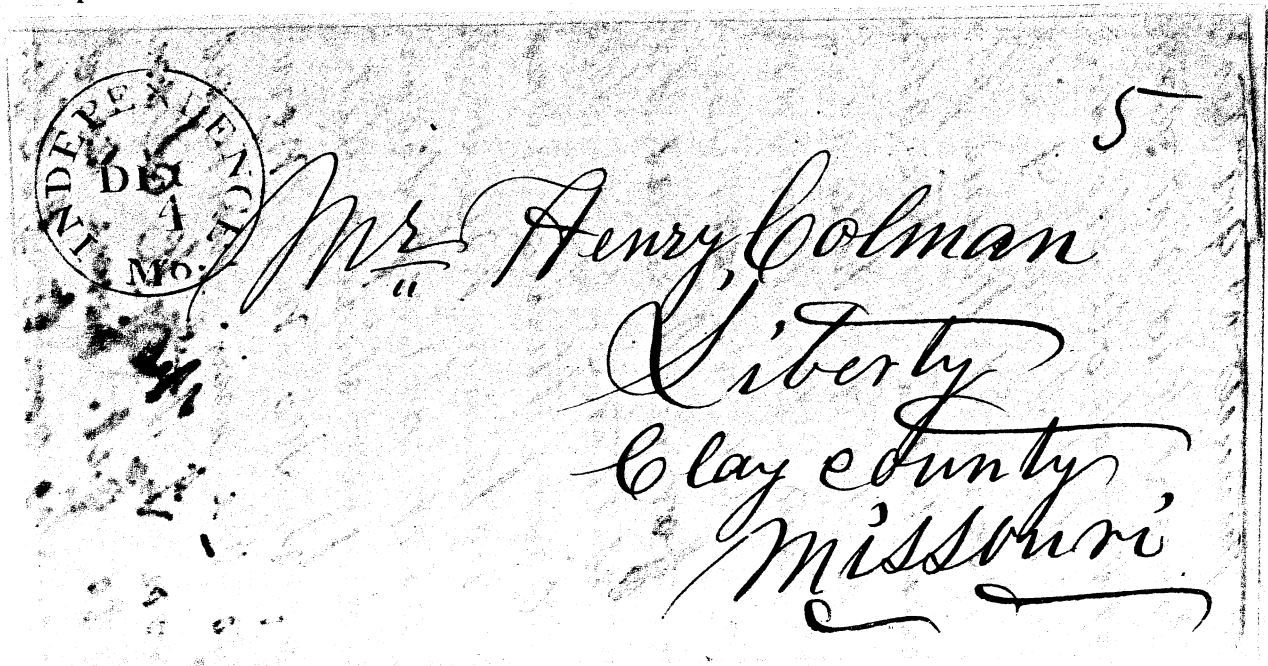 INDEPENDENCE
DEC
4
Mo.
5
Mr Henry Colman
Liberty
Clay county
Missouri